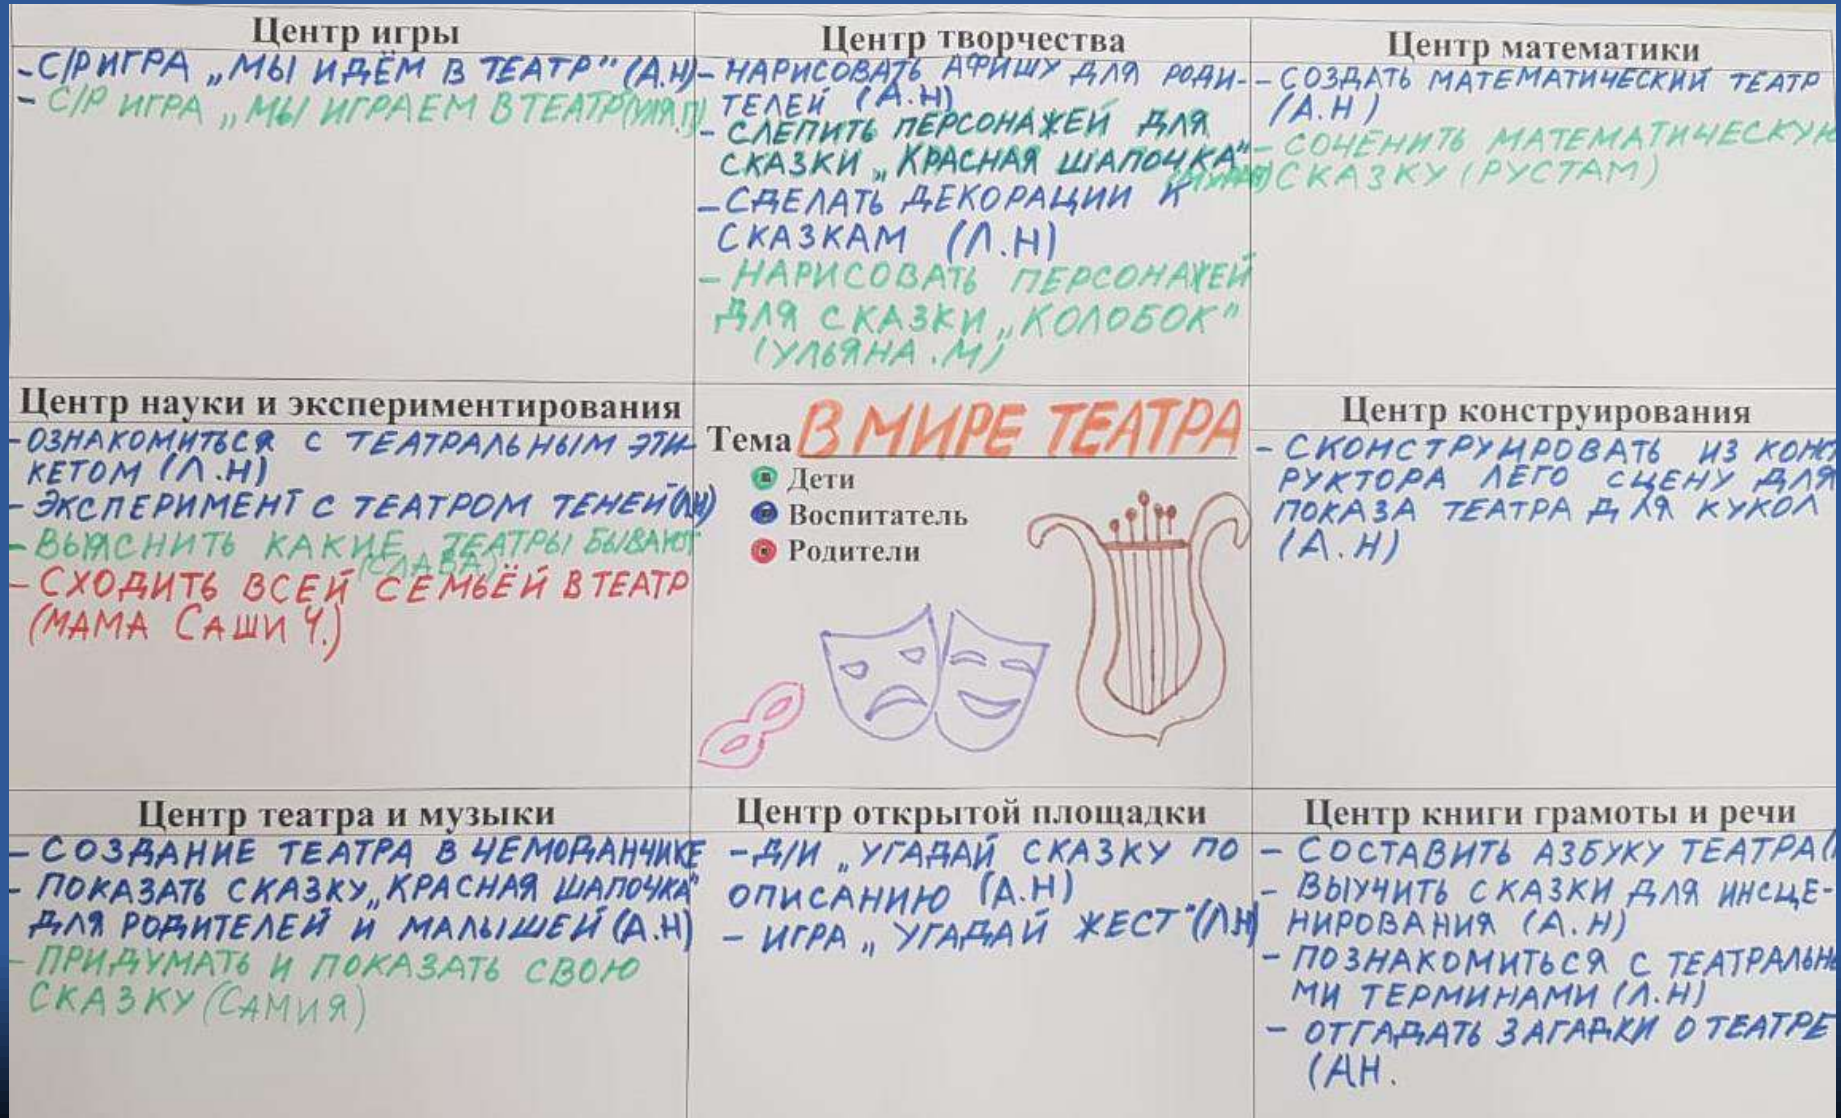 Центр игры
- С/Р ИГРА „МЫ ИДЁМ В ТЕАТР" (А.Н)
- С/Р ИГРА „МЫ ИГРАЕМ В ТЕАТР
Центр творчества
- НАРИСОВАТЬ АФИШУ ДЛЯ РОДИ-
ТЕЛЕЙ (А.Н)
- СЛЕПИТЬ ПЕРСОНАЖЕЙ ДЛЯ
СКАЗКИ „КРАСНАЯ ШАПОЧКА"
- СДЕЛАТЬ ДЕКОРАЦИИ К
СКАЗКАМ (Л.Н)
- НАРИСОВАТЬ ПЕРСОНАЖЕЙ
ДЛЯ СКАЗКИ „КОЛОБОК"
(УЛЬЯНА.М)
Центр математики
- СОЗДАТЬ МАТЕМАТИЧЕСКИЙ ТЕАТР
(А.Н)
- СОЧЕНИТЬ МАТЕМАТИЧЕСКУЮ
СКАЗКУ (РУСТАМ)
Центр науки и экспериментирования
- ОЗНАКОМИТЬСЯ С ТЕАТРАЛЬНЫМ ЭТИ-
КЕТОМ (Л.Н)
- ЭКСПЕРИМЕНТ С ТЕАТРОМ ТЕНЕЙ (Л.Н)
- ВЫЯСНИТЬ КАКИЕ ТЕАТРЫ БЫВАЮТ
(СЛАВА)
- СХОДИТЬ ВСЕЙ СЕМЬЁЙ В ТЕАТР
(МАМА САШИ Ч.)
Тема В МИРЕ ТЕАТРА
Дети
Воспитатель
Родители
Центр конструирования
- СКОНСТРУИРОВАТЬ ИЗ КОНСТ
РУКТОРА ЛЕГО СЦЕНУ ДЛЯ
ПОКАЗА ТЕАТРА ДЛЯ КУКОЛ
(А.Н)
Центр театра и музыки
- СОЗДАНИЕ ТЕАТРА В ЧЕМОДАНЧИКЕ
- ПОКАЗАТЬ СКАЗКУ „КРАСНАЯ ШАПОЧКА"
ДЛЯ РОДИТЕЛЕЙ И МАЛЫШЕЙ (А.Н)
- ПРИДУМАТЬ И ПОКАЗАТЬ СВОЮ
СКАЗКУ (САМИЯ)
Центр открытой площадки
- Д/И „УГАДАЙ СКАЗКУ ПО
ОПИСАНИЮ (А.Н)
- ИГРА „УГАДАЙ ЖЕСТ" (Л.Н)
Центр книги грамоты и речи
- СОСТАВИТЬ АЗБУКУ ТЕАТРА (
- ВЫУЧИТЬ СКАЗКИ ДЛЯ ИНСЦЕ-
НИРОВАНИЯ (А.Н)
- ПОЗНАКОМИТЬСЯ С ТЕАТРАЛЬНЫ
МИ ТЕРМИНАМИ (Л.Н)
- ОТГАДАТЬ ЗАГАДКИ О ТЕАТРЕ
(А.Н.